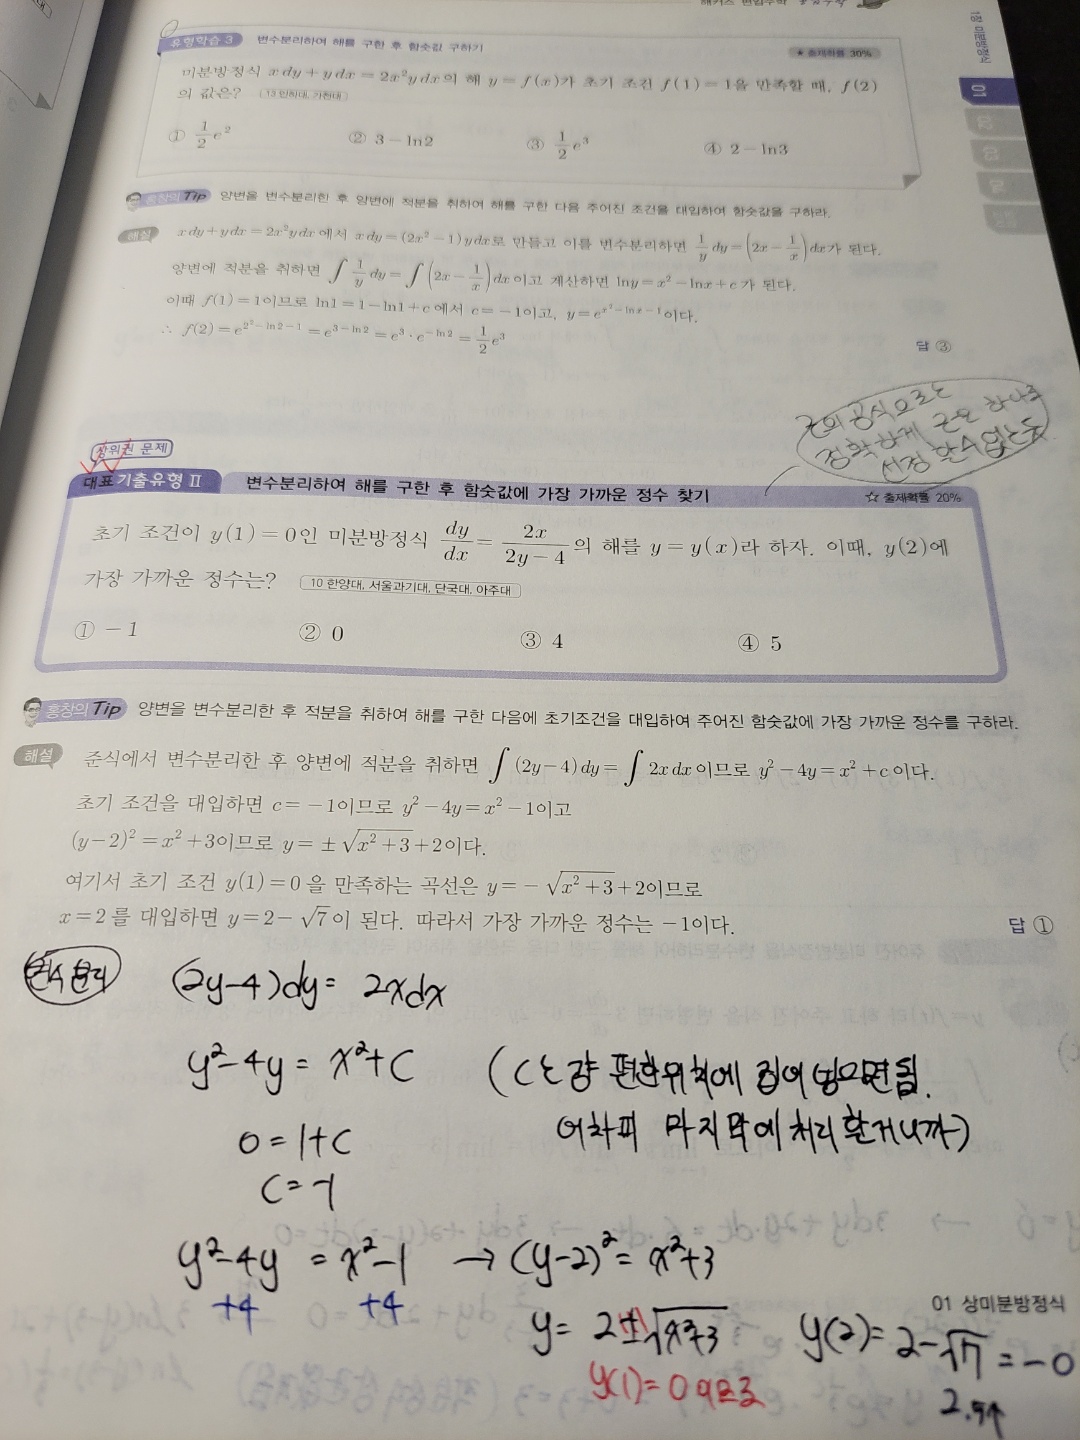 해커스 편입수학
1장 미분방정식
01
02
03
04
유형학습 3 변수분리하여 해를 구한 후 함숫값 구하기 ★ 출제확률 30%
미분방정식 x dy + y dx = 2x²y dx의 해 y = f(x)가 초기 조건 f(1) = 1을 만족할 때, f(2)
의 값은? 13 인하대, 가천대
① 1/2 e² ② 3 − ln2 ③ 1/2 e³ ④ 2 − ln3
홍창의 Tip 양변을 변수분리한 후 양변에 적분을 취하여 해를 구한 다음 주어진 조건을 대입하여 함숫값을 구하라.
해설 xdy + ydx = 2x²ydx에서 xdy = (2x² − 1)ydx로 만들고 이를 변수분리하면 1/y dy = (2x − 1/x)dx가 된다.
양변에 적분을 취하면 ∫ 1/y dy = ∫ (2x − 1/x)dx이고 계산하면 lny = x² − lnx + c가 된다.
이때 f(1) = 1이므로 ln1 = 1 − ln1 + c에서 c = −1이고, y = e^(x²−lnx−1)이다.
∴ f(2) = e^(2²−ln2−1) = e^(3−ln2) = e³ · e^(−ln2) = 1/2 e³
답 ③
근의 공식으로는
정확하게 근을 하나로
선정 할수 없는듯
상위권 문제
대표 기출유형 Ⅱ 변수분리하여 해를 구한 후 함숫값에 가장 가까운 정수 찾기 ☆ 출제확률 20%
초기 조건이 y(1) = 0인 미분방정식 dy/dx = 2x/(2y − 4)의 해를 y = y(x)라 하자. 이때, y(2)에
가장 가까운 정수는? 10 한양대, 서울과기대, 단국대, 아주대
① −1 ② 0 ③ 4 ④ 5
홍창의 Tip 양변을 변수분리한 후 적분을 취하여 해를 구한 다음에 초기조건을 대입하여 주어진 함숫값에 가장 가까운 정수를 구하라.
해설 준식에서 변수분리한 후 양변에 적분을 취하면 ∫ (2y − 4)dy = ∫ 2x dx이므로 y² − 4y = x² + c이다.
초기 조건을 대입하면 c = −1이므로 y² − 4y = x² − 1이고
(y − 2)² = x² + 3이므로 y = ± √(x² + 3) + 2이다.
여기서 초기 조건 y(1) = 0을 만족하는 곡선은 y = − √(x² + 3) + 2이므로
x = 2를 대입하면 y = 2 − √7이 된다. 따라서 가장 가까운 정수는 −1이다.
답 ①
변수분리 (2y-4)dy = 2xdx
y²-4y = x²+C (C는 걍 편한위치에 집어 넣으면됨.
0 = 1+C 어차피 마지막에 처리 할거니까)
C = -1
y²-4y = x²-1 → (y-2)² = x²+3
+4 +4
01 상미분방정식
y = 2±√(x²+3) y(2) = 2-√7 = -0
y(1) = 0